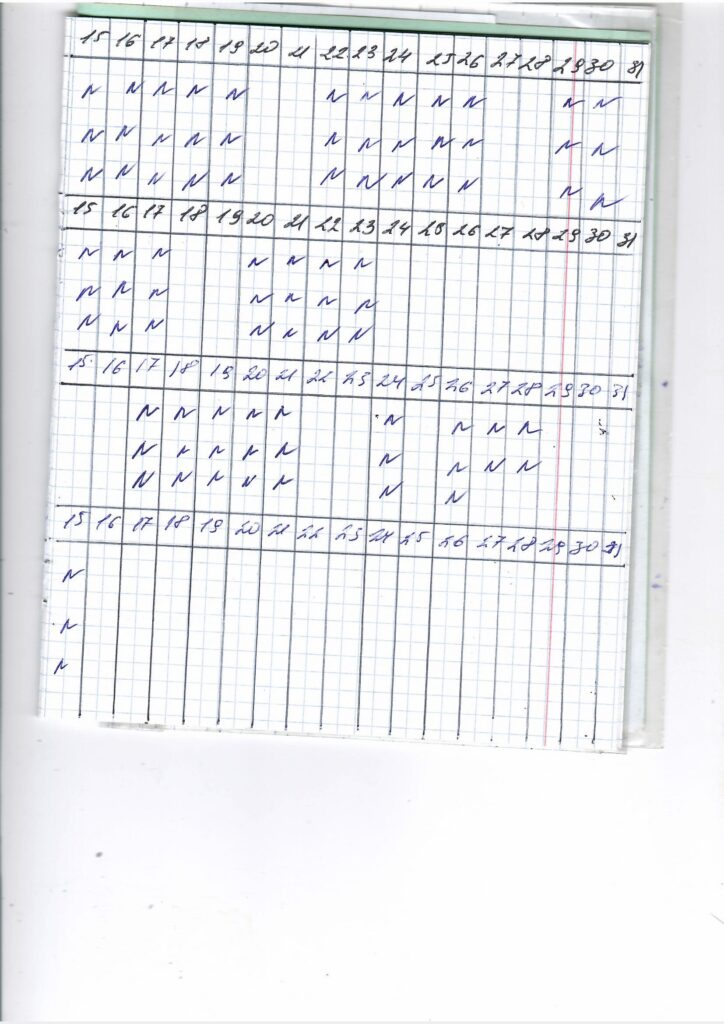 15 16 17 18 19 20 21 22 23 24 25 26 27 28 29 30 31
N N N N N N N N N N N N
N N N N N N N N N N N N
N N N N N N N N N N N N
15 16 17 18 19 20 21 22 23 24 25 26 27 28 29 30 31
N N N N N N N
N N N N N N N
N N N N N N N
15 16 17 18 19 20 21 22 23 24 25 26 27 28 29 30 31
N N N N N N N N N
N N N N N N N N N
N N N N N N N
15 16 17 18 19 20 21 22 23 24 25 26 27 28 29 30 31
N
N
N